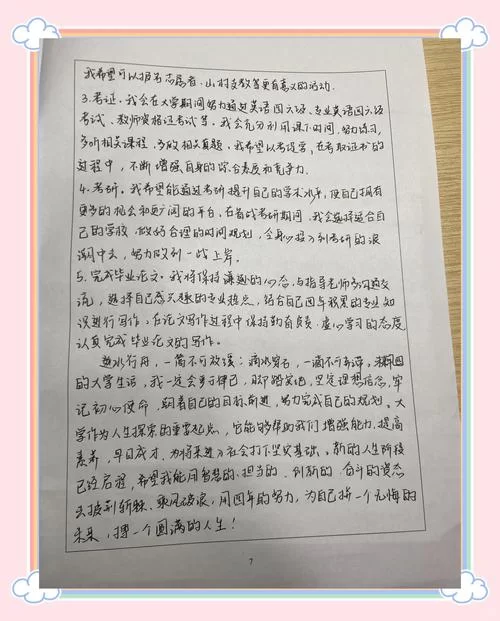 我希望可以报名志愿者、山村支教等更有意义的活动.
3.考证。我会在大学期间努力通过英语四六级、专业英语四八级
考试、教师资格证考试等。我会充分利用课下时间,努力练习,
多听相关课程,多做相关真题。我希望以考促学,在考取证书的
过程中,不断增强自身的综合素质和竞争力。
4.考研。我希望能通过考研提升自己的学术水平,使自己拥有
更多的机会和更广阔的平台。在备战考研期间,我会选择适合自
己的学校,做好合理的时间规划,全身心投入到考研的浪
潮中去,努力做到一战上岸。
5.完成毕业论文。我将保持谦逊的心态,与指导老师多沟通交
流,选择自己感兴趣的专业热点,结合自己四年积累的专业知
识进行写作。在论文写作过程中保持勤奋负责、虚心学习的态度,
认真完成毕业论文的写作。
逆水行舟,一篙不可放缓;滴水穿石,一滴不可弃滞。
的大学生活,我一定会勇于押己,脚踏实地,坚定理想信念,牢
记初心使命,朝着自己的目标前进,努力完成自己的规划。大
学作为人生探索的重要起点,它能够帮助我们增强能力,提高
素养,早日成才,为将来进入社会打下坚实基础。新的人生阶段
已经启程,希望我能用智慧的、担当的、创新的、奋斗的姿态
去披荆斩棘、乘风破浪,用四年的努力,为自己拼一个无悔的
未来,搏一个圆满的人生!
7